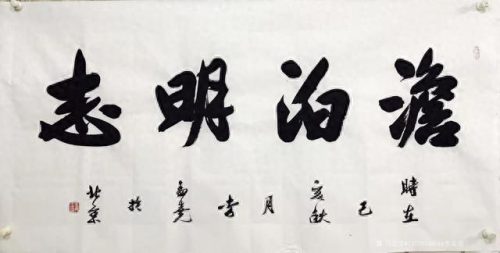 澹泊明志
時在己亥秋月李孟尧於北京